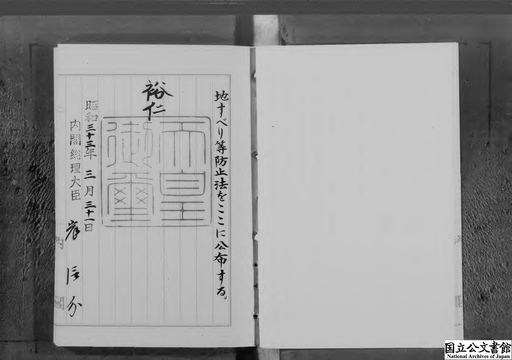 地すべり等防止法をここに公布する。
裕仁
天皇御璽
昭和三十三年三月三十一日
内閣總理大臣 岸信介
国立公文書館
National Archives of Japan